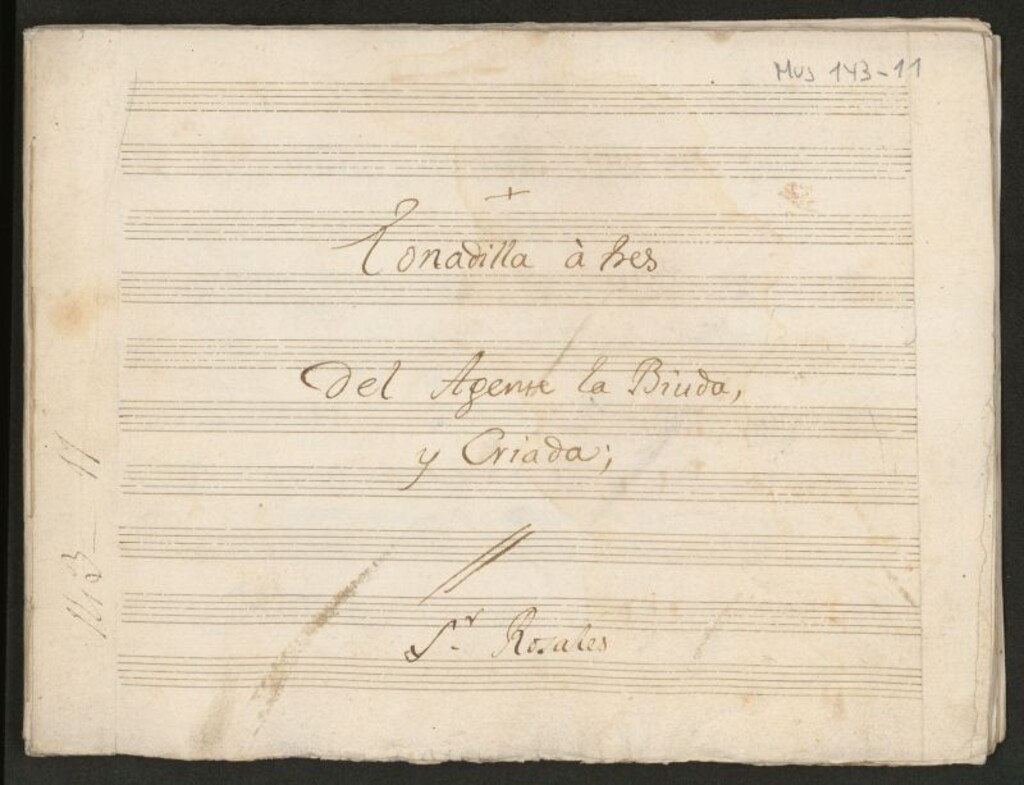 Mus 143-11
+
Tonadilla à tres
Del Agente la Biuda,
y Criada;
Sr. Rosales
143-11